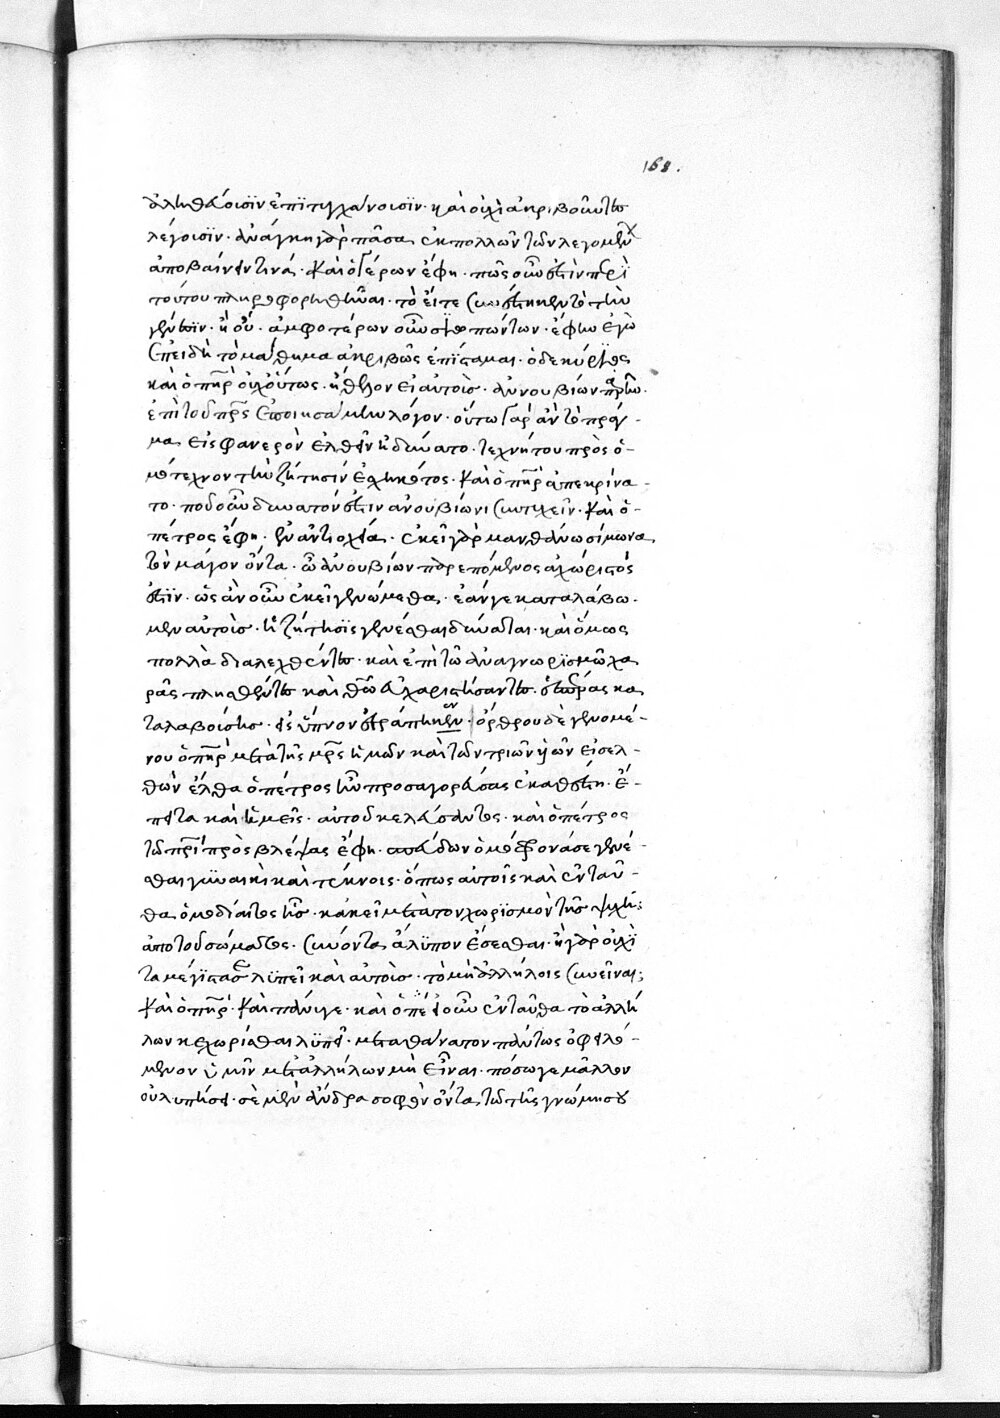 168.
ἀληθεύουσιν ἐπιτυγχάνουσιν· καὶ οὐχὶ ἀκριβοῦντες
λέγουσιν· ἀνάγκη γὰρ πᾶσα ἐκ πολλῶν τῶν λεγομένων
ἀποβαίνειν τινά· καὶ ὁ γέρων ἔφη· πῶς οὖν ἐστὶν περὶ
τούτου πληροφορηθῆναι· τὸ εἴτε συνέστηκεν τὸ τὴν
γένεσιν· ἢ οὔ· ἀμφοτέρων οὖν σιωπώντων· ἔφην ἐγὼ
ἐπειδὴ τὸ μάθημα ἀκριβῶς ἐπίσταμαι· ὁ δὲ κύριος
καὶ ὁ πατὴρ οὐχ οὕτως· ἤθελον εἰ αὐτὸς· ἀνουβίων παρῆν·
ἐπὶ τοῦ πατρὸς ἐποιησάμην λόγον· οὕτω γὰρ ἂν τὸ πρᾶγ-
μα εἰς φανερὸν ἐλθεῖν ἠδύνατο· τεχνήτου πρὸς ὁ-
μότεχνον τὴν ζήτησιν εἰληφότος· καὶ ὁ πατὴρ ἀπεκρίνα-
το· ποῦ οὖν δυνατόν ἐστιν ἀνουβίωνι συντυχεῖν· καὶ ὁ
πέτρος ἔφη· ἐν ἀντιοχείᾳ· ἐκεῖ γὰρ μανθάνω σίμωνα
τὸν μάγον ὄντα· ᾧ ἀνουβίων παρεπόμενος ἀχώριστός
ἐστιν· ὡς ἂν οὖν ἐκεῖ γενώμεθα· ἐάνγε καταλάβω-
μεν αὐτοὺς· ἡ ζήτησις γενέσθαι δύναται· καὶ ὅμως
πολλὰ διαλεχθέντες· καὶ ἐπὶ τῷ ἀναγνωρισμῷ χα
ρᾶς πλησθέντες καὶ θεῷ εὐχαριστήσαντες· ἑσπέρας κα
ταλαβούσης· εἰς ὕπνον ἐτράπημεν· ὄρθρου δὲ γενομέ-
νου ὁ πατὴρ μετὰ τῆς μητρὸς ἡμῶν καὶ τῶν τριῶν υἱῶν εἰσελ-
θὼν ἔνθα ὁ πέτρος ἦν προσαγορεύσας ἐκαθέσθη· ἔ-
πειτα καὶ ἡμεῖς· αὐτοῦ κελεύσαντος· καὶ ὁ πέτρος
τῷ πατρὶ προσβλέψας ἔφη· σπεύδων ὁμόφρονά σε γενέ-
σθαι γυναικὶ καὶ τέκνοις· ὅπως αὐτοῖς καὶ ἐνταῦ-
θα ὁμοδίαιτος ᾖς· κἀκεῖ μετὰ τὸν χωρισμὸν τῆς ψυχῆς
ἀπὸ τοῦ σώματος· συνόντα ἄλυπον ἔσεσθαι· ἢ γὰρ οὐχὶ
τὰ μέγιστά σε λυπεῖ καὶ αὐτοὺς· τὸ μὴ ἀλλήλοις συνεῖναι;
καὶ ὁ πατήρ· καὶ πάνυγε· καὶ ὁ πέτρος· εἰ οὖν ἐνταῦθα τὸ ἀλλή
λων κεχωρίσθαι λυπεῖ· μετὰ θάνατον πάντως ὀφειλό-
μενον ὑμῖν μετ᾽ ἀλλήλων μὴ εἶναι· πόσῳγε μᾶλλον
οὐ λυπήσει· σὲ μὲν ἄνδρα σοφὸν ὄντα, τῷ τῆς γνώμης σου